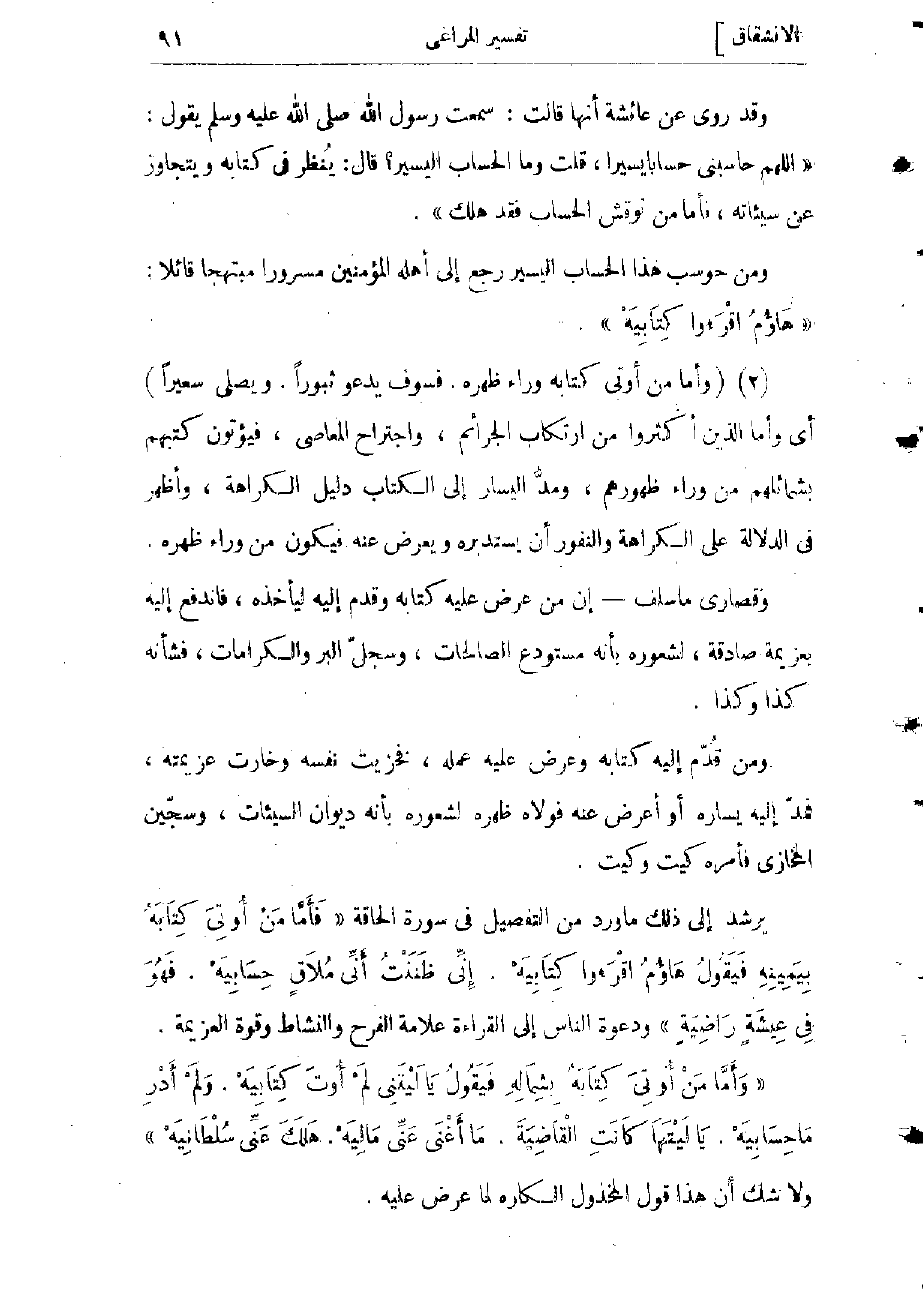 الانشقاق ] تفسير المراغى ٩١
وقد روى عن عائشة أنها قالت : سمعت رسول الله صلى الله عليه وسلم يقول :
« اللهم حاسبنى حسابا يسيرا ، قلت وما الحساب اليسير؟ قال: يُنظر فى كتابه ويتجاوز
عن سيئاته ، فأما من نوقش الحساب فقد هلك » .
ومن حوسب هذا الحساب اليسير رجع إلى أهله المؤمنين مسرورا مبتهجا قائلا :
« هَاؤُمُ اقْرَءوا كِتَابِيَهْ » .
(٢) ( وأما من أوتى كتابه وراء ظهره . فسوف يدعو ثبوراً . ويصلى سعيراً )
أى وأما الذين أكثروا من ارتكاب الجرائم ، واجتراح المعاصى ، فيؤتون كتبهم
بشمائلهم من وراء ظهورهم ، ومدُّ اليسار إلى الكتاب دليل الكراهة ، وأظهر
فى الدلالة على الكراهة والنفور أن يستدبره ويعرض عنه فيكون من وراء ظهره .
وقصارى ماسلف — إن من عرض عليه كتابه وقدم إليه ليأخذه ، فاندفع إليه
بعزيمة صادقة ، لشعوره بأنه مستودع الصالحات ، وسجلّ البر والكرامات ، فشأنه
كذا وكذا .
ومن قُدّم إليه كتابه وعرض عليه عمله ، فخزيت نفسه وخارت عزيمته ،
فمدّ إليه يساره أو أعرض عنه فولاه ظهره لشعوره بأنه ديوان السيئات ، وسجّين
المخازى فأمره كيت وكيت .
يرشد إلى ذلك ماورد من التفصيل فى سورة الحاقة « فَأَمَّا مَنْ أُوتِىَ كِتَابَهُ
بِيَمِينِهِ فَيَقُولُ هَاؤُمُ اقْرَءوا كِتَابِيَهْ . إِنِّى ظَنَنْتُ أَنِّى مُلَاقٍ حِسَابِيَهْ . فَهُوَ
فِى عِيشَةٍ رَاضِيَةٍ » ودعوة الناس إلى القراءة علامة الفرح والنشاط وقوة العزيمة .
« وَأَمَّا مَنْ أُوتِىَ كِتَابَهُ بِشِمَالِهِ فَيَقُولُ يَا لَيْتَنِى لَمْ أُوتَ كِتَابِيَهْ . وَلَمْ أَدْرِ
مَاحِسَابِيَهْ . يَا لَيْتَهَا كَانَتِ الْقَاضِيَةَ . مَا أَغْنَى عَنِّى مَالِيَهْ . هَلَكَ عَنِّى سُلْطَانِيَهْ »
ولا شك أن هذا قول المخذول الكاره لما عرض عليه .